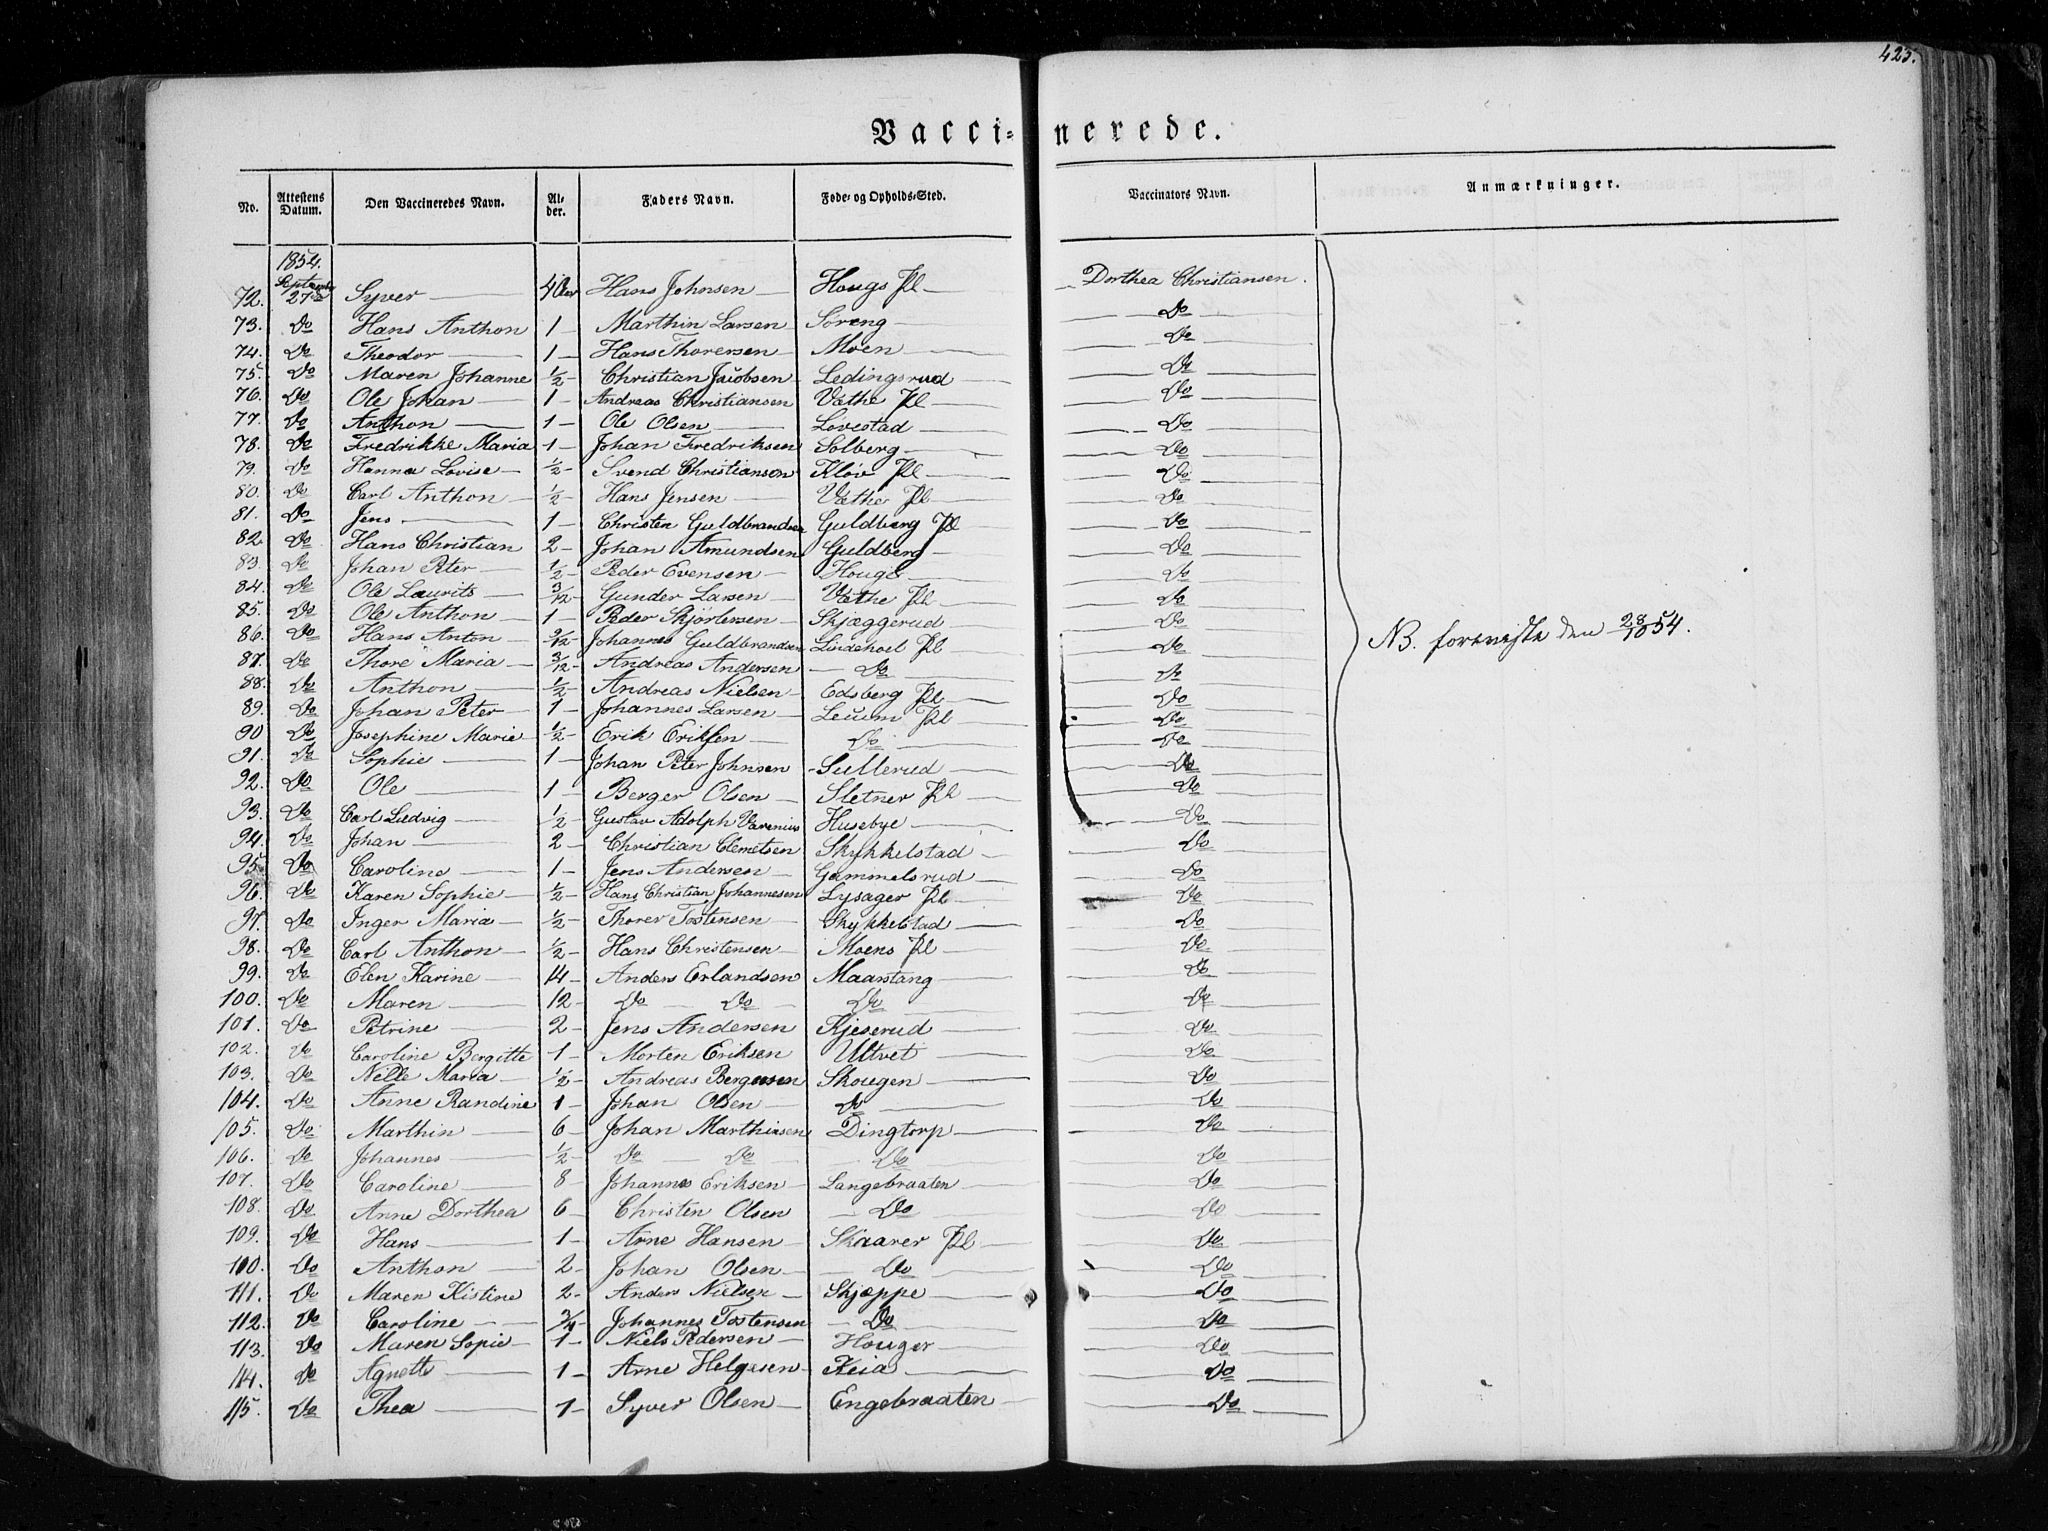 423.
Vacci-nerede.
No. Attestens Datum. Den Vaccineredes Navn. Al-der. Faders Navn. Føde- og Opholds-Sted. Vaccinators Navn. Anmærkninger.
1854.
72. September 27de Syver 4 Hans Johnsen Hougs Pl Dorthea Christiansen.
73. Do Hans Anthon 1 Marthin Larsen Søreng Do
74. Do Theodor 1 Hans Thorersen Moen Do
75. Do Maren Johanne 1/2 Christian Jacobsen Ledingsrud Do
76. Do Ole Johan 1 Andreas Christiansen Væthe Pl Do
77. Do Anthon 1 Ole Olsen Løvestad Do
78. Do Fredrikke Maria 1 Johan Fredriksen Solberg Do
79. Do Hanna Lovise 1/2 Svend Christiansen Kløv Pl Do
80. Do Carl Anthon 1/2 Hans Jensen Væthe Pl Do
81. Do Jens 1 Christen Guldbrandsen Guldberg Pl Do
82. Do Hans Christian 2 Johan Amundsen Guldberg Do
83. Do Johan Peter 1/2 Peder Evensen Houger Do
84. Do Ole Laurits 3/12 Gunder Larsen Væthe Pl Do
85. Do Ole Anthon 1 Peder Skjørtersen Skjæggerud Do
86. Do Hans Anton 9/12 Johannes Guldbrandsen Lindehoel Pl Do
NB. foreviste den 28/10 54.
87. Do Thore Maria 3/12 Andreas Andersen Do Do
88. Do Anthon 1/2 Andreas Nielsen Edsberg Pl Do
89. Do Johan Peter 1 Johannes Larsen Leuum Pl Do
90 Do Josephine Marie 1/2 Erik Eriksen Do Do
91. Do Sophie 1 Johan Peter Johnsen Sullerud Do
92. Do Ole 1 Berger Olsen Sletner Pl Do
93. Do Carl Ludvig 1/2 Gustav Adolph Varenius Husebye Do
94. Do Johan 2 Christian Clemetsen Skykkelstad Do
95. Do Caroline 1 Jens Andersen Gammelsrud Do
96. Do Karen Sophie 1/2 Hans Christian Johannesen Lysager Pl Do
97. Do Inger Maria 1/2 Thorer Tostensen Skykkelstad Do
98. Do Carl Anthon 1/2 Hans Christensen Moens Pl Do
99. Do Elen Karine 14 Anders Erlandsen Maarstang Do
100. Do Maren 12 Do Do Do Do
101. Do Petrine 2 Jens Andersen Kjeserud Do
102. Do Caroline Bergitte 1 Morten Eriksen Ultvet Do
103. Do Nelle Maria 1/2 Andreas Bergersen Skougen Do
104. Do Anne Randine 1 Johan Olsen Do Do
105. Do Marthin 6 Johan Marthinsen Dingtorp Do
106. Do Johannes 1/2 Do Do Do Do
107. Do Caroline 8 Johannes Eriksen Langebraaten Do
108. Do Anne Dorthea 6 Christen Olsen Do Do
109. Do Hans 1 Arne Hansen Skaarer Pl Do
110. Do Anthon 2 Johan Olsen Do Do
111. Do Maren Kistine 2 Anders Nielsen Skjæppe Do
112. Do Caroline 3/4 Johannes Tostensen Do Do
113. Do Maren Sopie 1 Niels Pedersen Houger Do
114. Do Agnette 1 Arne Helgesen Keia Do
115. Do Thea 1 Syver Olsen Engebraaten Do